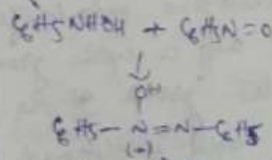 C6H5NHOH + C6H5N=O
↓
OH
C6H5-N=N-C6H5
(+)